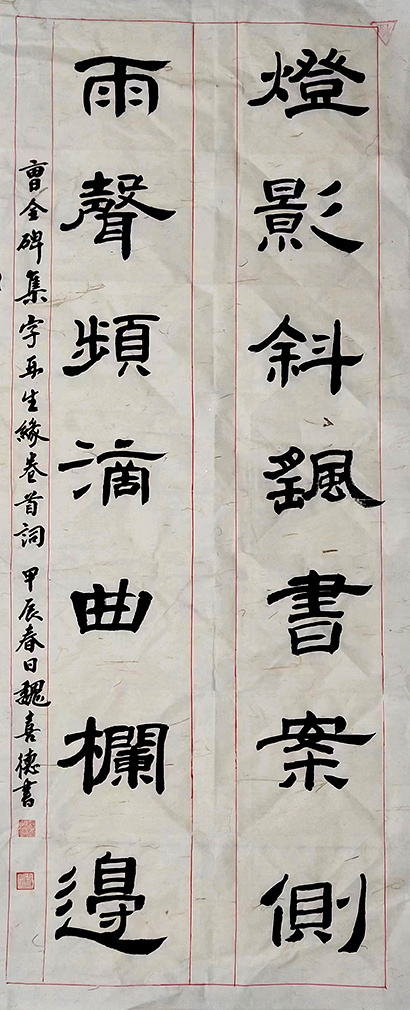 燈影斜飄書案側
雨聲頻滴曲欄邊
曹全碑集字再生緣卷首詞 甲辰春日魏喜德書